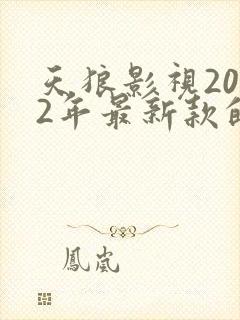 天狼影視20
2年最新款的
鳳嵐